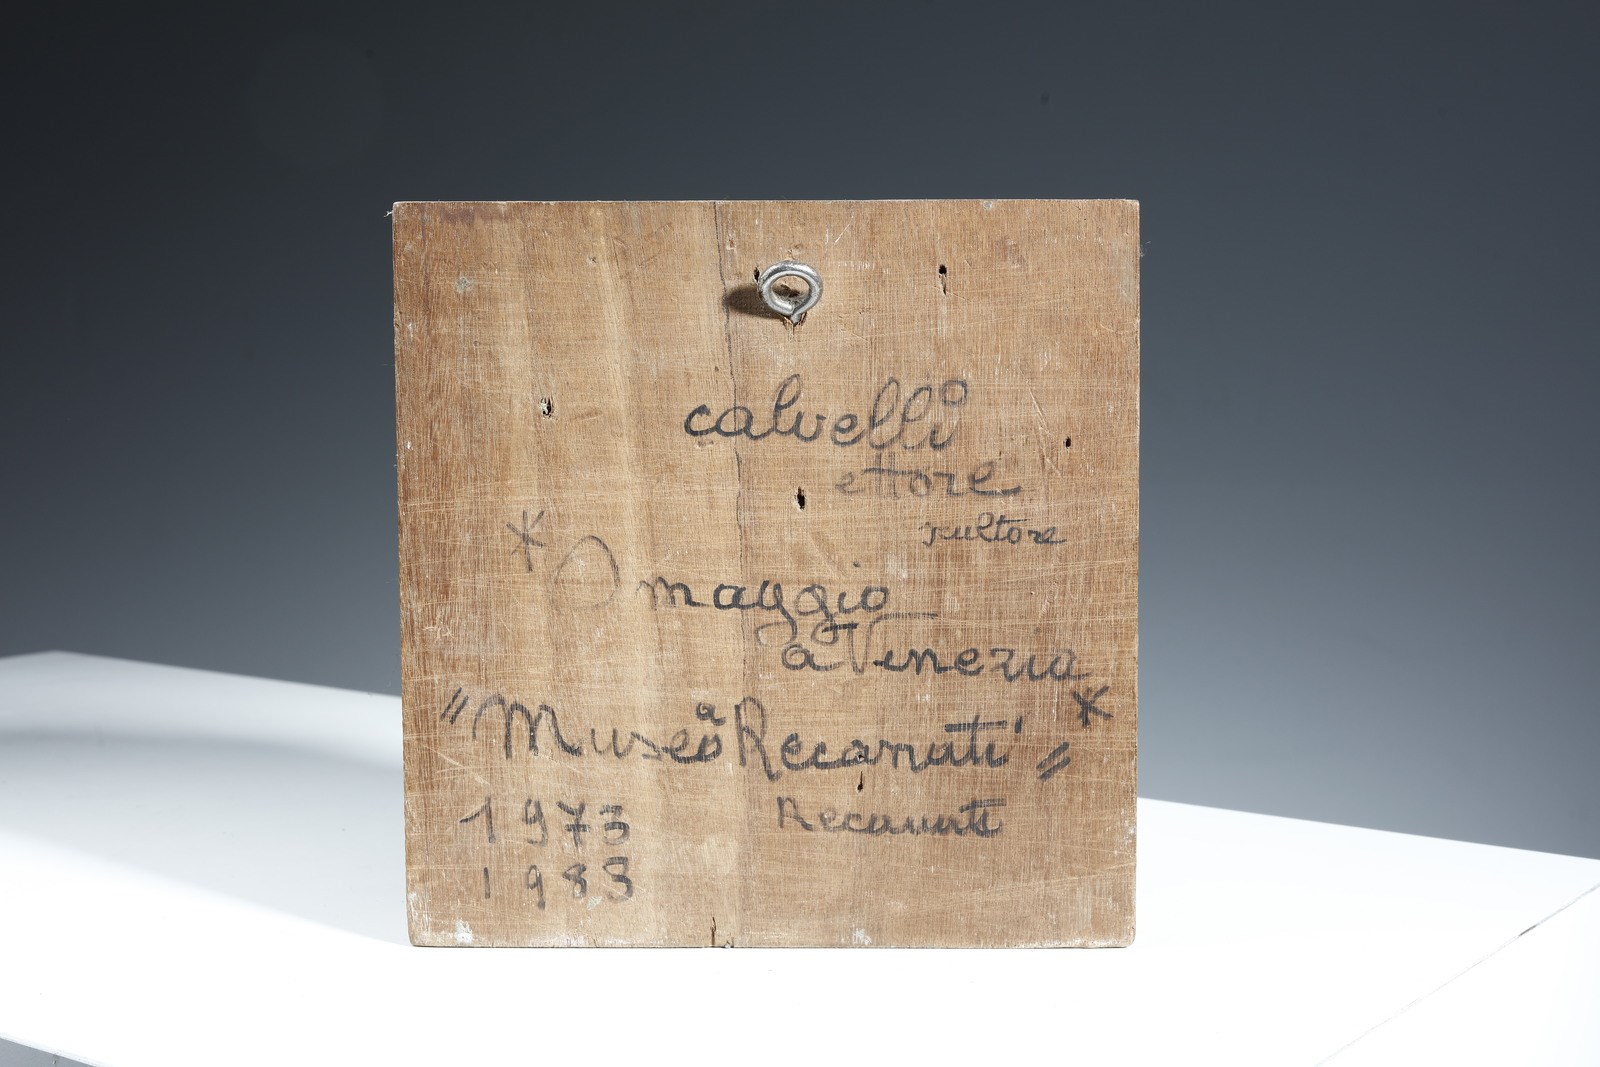 calvelli
ettore
scultore
* Omaggio
a Venezia *
"Museo a Recanati"
1973 Recanati
1983